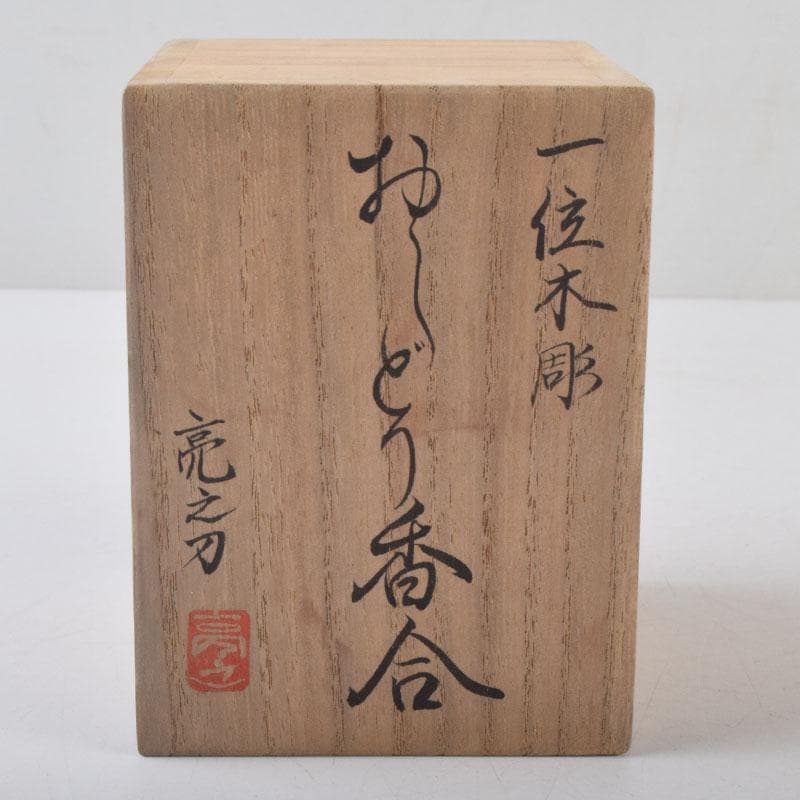 一位木彫
おしどり香合
亮之刀